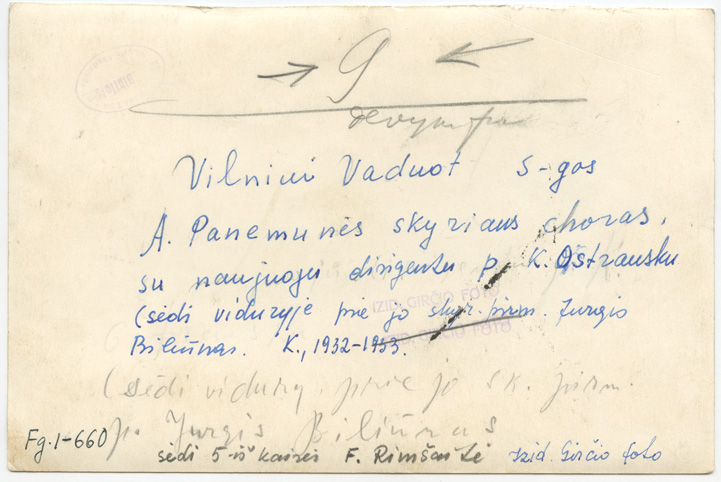 → 9 ←
Vilniui Vaduot S-gos
A. Panemunės skyriaus choras,
su naujuoju dirigentu p. K. Ostrausku
(sėdi viduryje prie jo skyr. pirm. Jurgio
IZID. GIRČIO FOTO
IZID. GIRČIO FOTO
Biliūnas. K., 1932-1933.
(sėdi vidury, prie jo sk. pirm.
p. Jurgis Biliūnas
Fg. 1-660
sėdi 5-iš kairės F. Rimšaitė Izid. Girčio foto